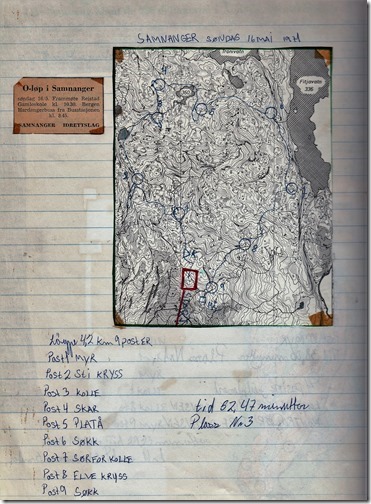 SAMNANGER SØNDAG 16 MAI 1971
Tranvatn
Fitjavatn
336
O-løp i Samnanger
søndag 16/5. Frammøte Reistad
Gamleskule kl. 10.30. Bergen
Hardangerbuss frå Busstasjonen
kl. 8.45.
SAMNANGER IDRETTSLAG
Løype 4,2 km 9 poster
Post 1 MYR
Post 2 Sti KRYSS
Post 3 KOLLE
Post 4 SKAR
Post 5 PLATÅ
Post 6 SØKK
Post 7 SØRFOR KOLLE
Post 8 ELVE KRYSS
Post 9 SØKK
tid 62,47 minutter
Plass No 3